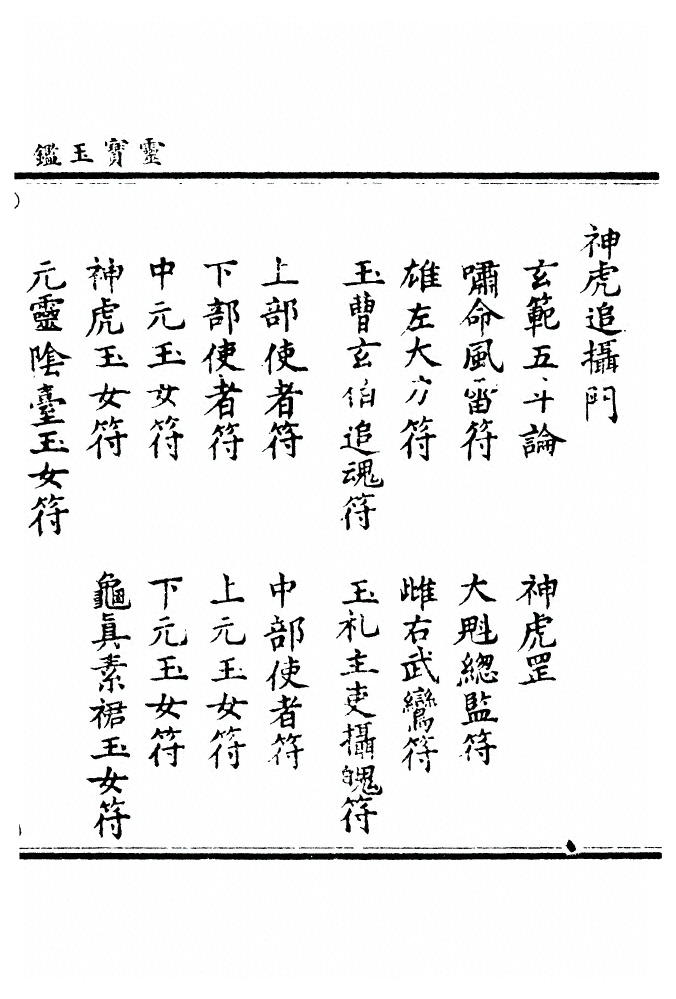 靈寶玉鑑
神虎追攝門
玄範五斗論
神虎罡
嘯命風雷符
大魁總監符
雄左大力符
雌右武鸞符
玉曹玄伯追魂符
玉札主吏攝魄符
上部使者符
中部使者符
下部使者符
上元玉女符
中元玉女符
下元玉女符
神虎玉女符
龜真素裙玉女符
元靈陰臺玉女符